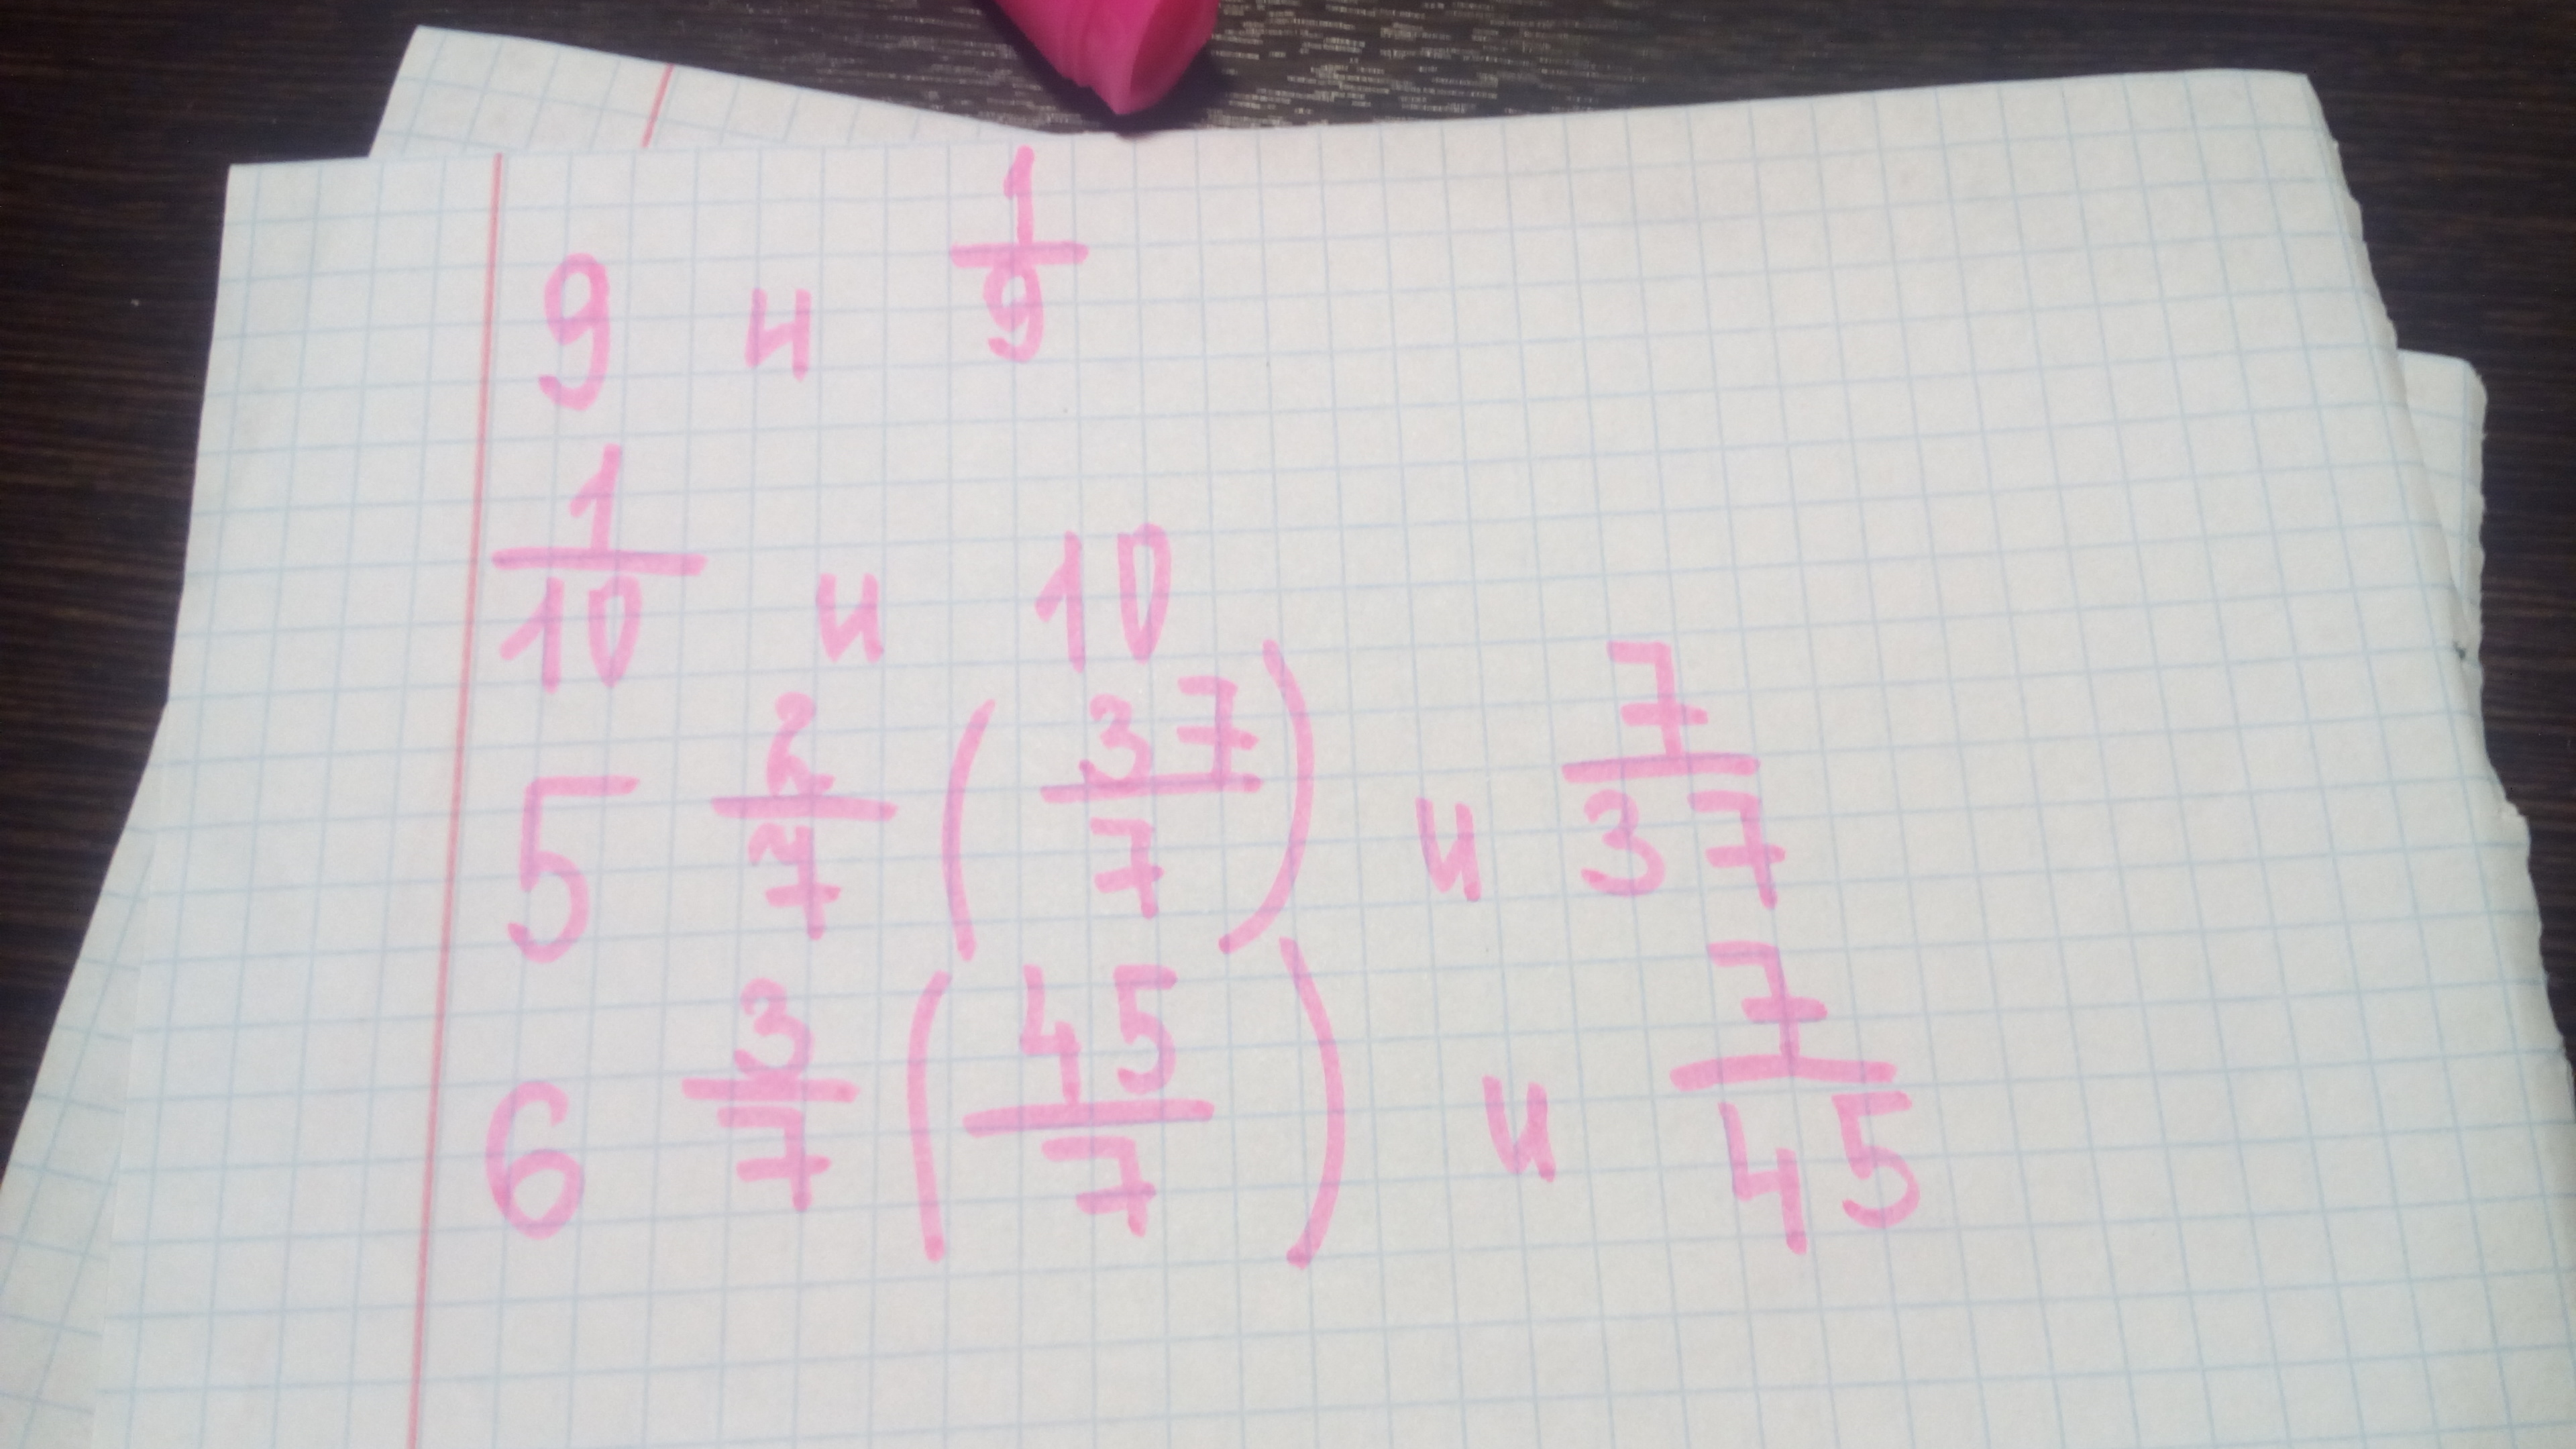 9 и 1/9
1/10 и 10
5 2/7 (37/7) и 7/37
6 3/7 (45/7) и 7/45